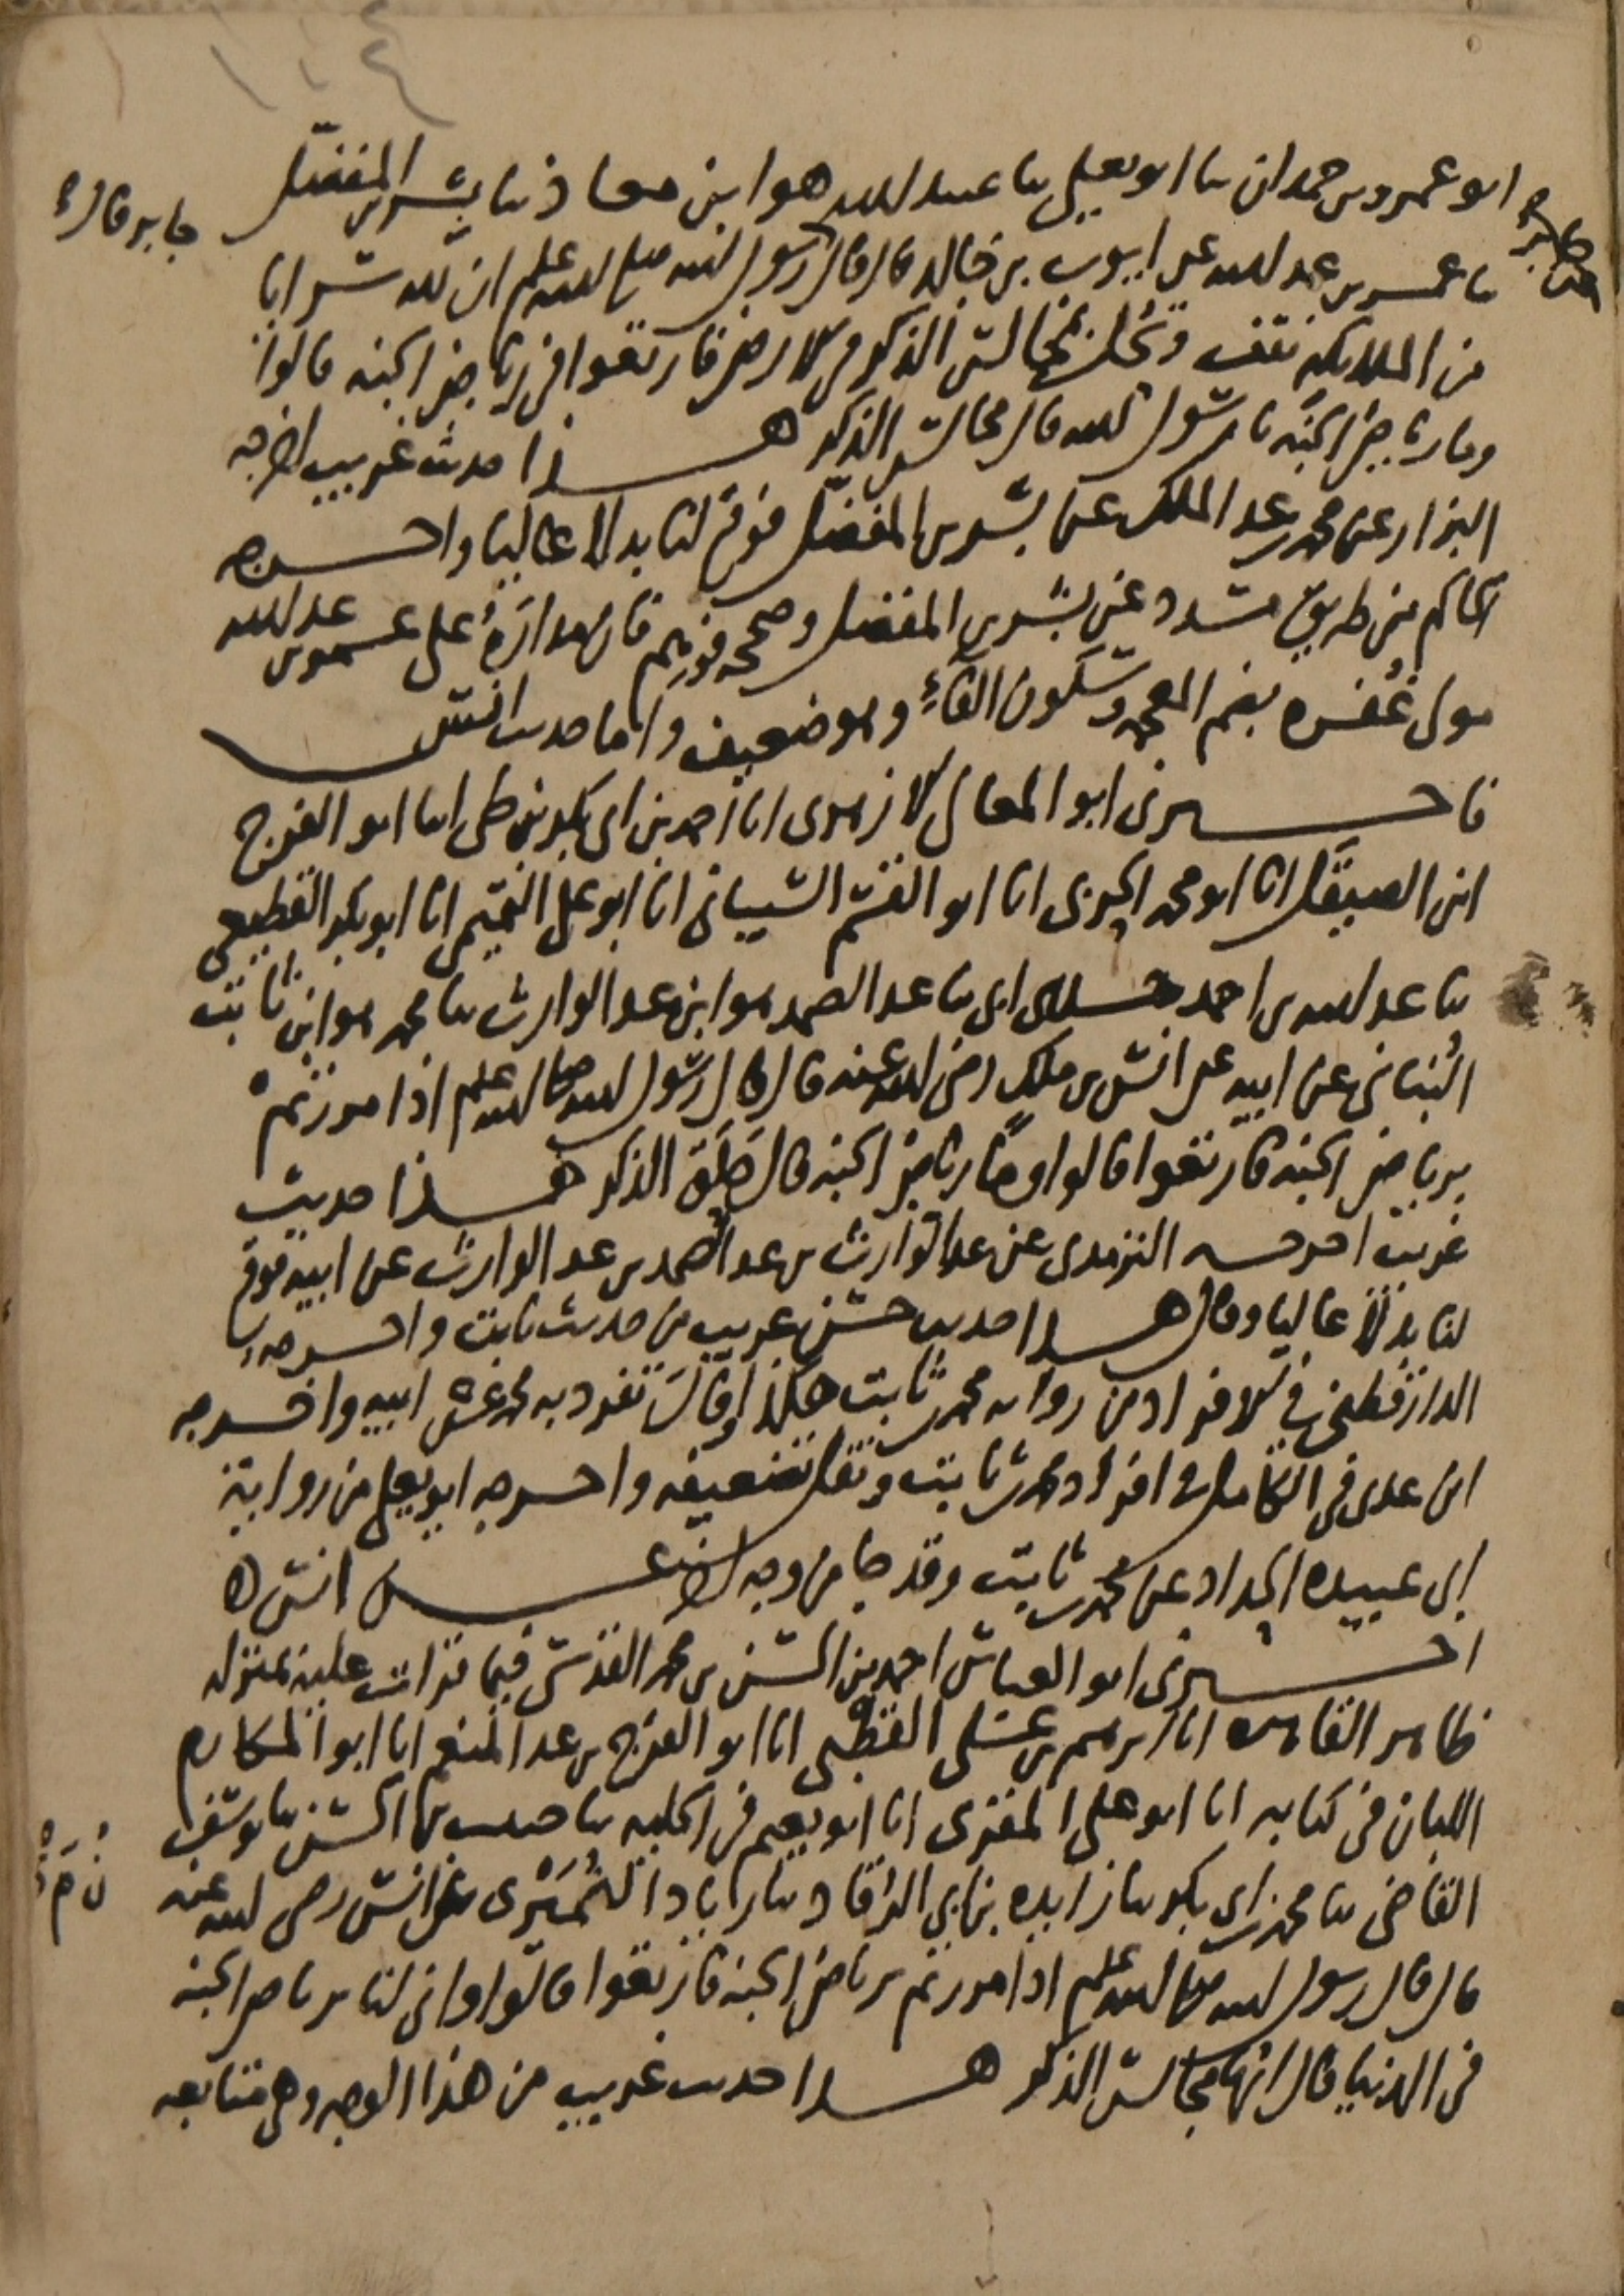 ابو عمرو بن حمدان ثنا ابو يعلى ثنا عبيد الله هو ابن معاذ ثنا بشر بن المفضل
ثنا عمر بن عبد الله عن ايوب بن خالد قال قال رسول الله صلى الله عليه وسلم ان لله سرايا
جابر قال
من الملايكة تقف وتحل بمجالس الذكر في الارض فارتعوا في رياض الجنة قالوا
وما رياض الجنة يا رسول الله قال مجالس الذكر هذا حديث غريب اخرجه
البزار عن محمد بن عبد الملك عن بشر بن المفضل فوقع لنا بدلا عاليا واخرجه
الحاكم من طريق مسدد عن بشر بن المفضل وصححه فوهم فان مداره على عمر بن عبد الله
مولى غُفرة بضم المعجمة وسكون الفاء وهو ضعيف واما حديث انس
فاخبرني ابو المعالي الازهري انا احمد بن ابي بكر بن طي انا ابو الفرج
ابن الصيقل انا ابو محمد الحربي انا ابو القسم الشيباني انا ابو علي التميمي انا ابو بكر القطيعي
ثنا عبد الله بن احمد حدثني ابي ثنا عبد الصمد هو ابن عبد الوارث ثنا محمد هو ابن ثابت
البُناني عن ابيه عن انس بن ملك رضي الله عنه قال قال رسول الله صلى الله عليه وسلم اذا مررتم
برياض الجنة فارتعوا قالوا وما رياض الجنة قال حِلَق الذكر هذا حديث
غريب اخرجه الترمذي عن عبد الوارث بن عبد الصمد بن عبد الوارث عن ابيه فوقع
لنا بدلا عاليا وقال هذا حديث حسن غريب من حديث ثابت واخرجه
الدارقطني في الافراد من رواية محمد بن ثابت هكذا وقال تفرد به محمد عن ابيه واخرجه
ابن عدي في الكامل في افراد محمد بن ثابت ونقل تضعيفه واخرجه ابو يعلى من رواية
ابي عبيدة الحداد عن محمد بن ثابت وقد جا من وجه اخر عن انس ه
اخبرني ابو العباس احمد بن الحسن بن محمد القدسي فيما قرات عليه بمنزله
ظاهر القاهرة انا ابرهيم بن علي القطبي انا ابو الفرج بن عبد المنعم انا ابو المكارم
اللبان في كتابه انا ابو علي المقري انا ابو نعيم في الحلية ثنا حبيب بن الحسن ثنا يوسف
القاضي ثنا محمد بن ابي بكر ثنا زايدة بن ابي الرقاد ثنا زياد النُمَيْري عن انس رضي الله عنه
قال قال رسول الله صلى الله عليه وسلم اذا مررتم برياض الجنة فارتعوا قالوا واني لنا برياض الجنة
في الدنيا قال انها مجالس الذكر هذا حديث غريب من هذا الوجه وهي متابعة